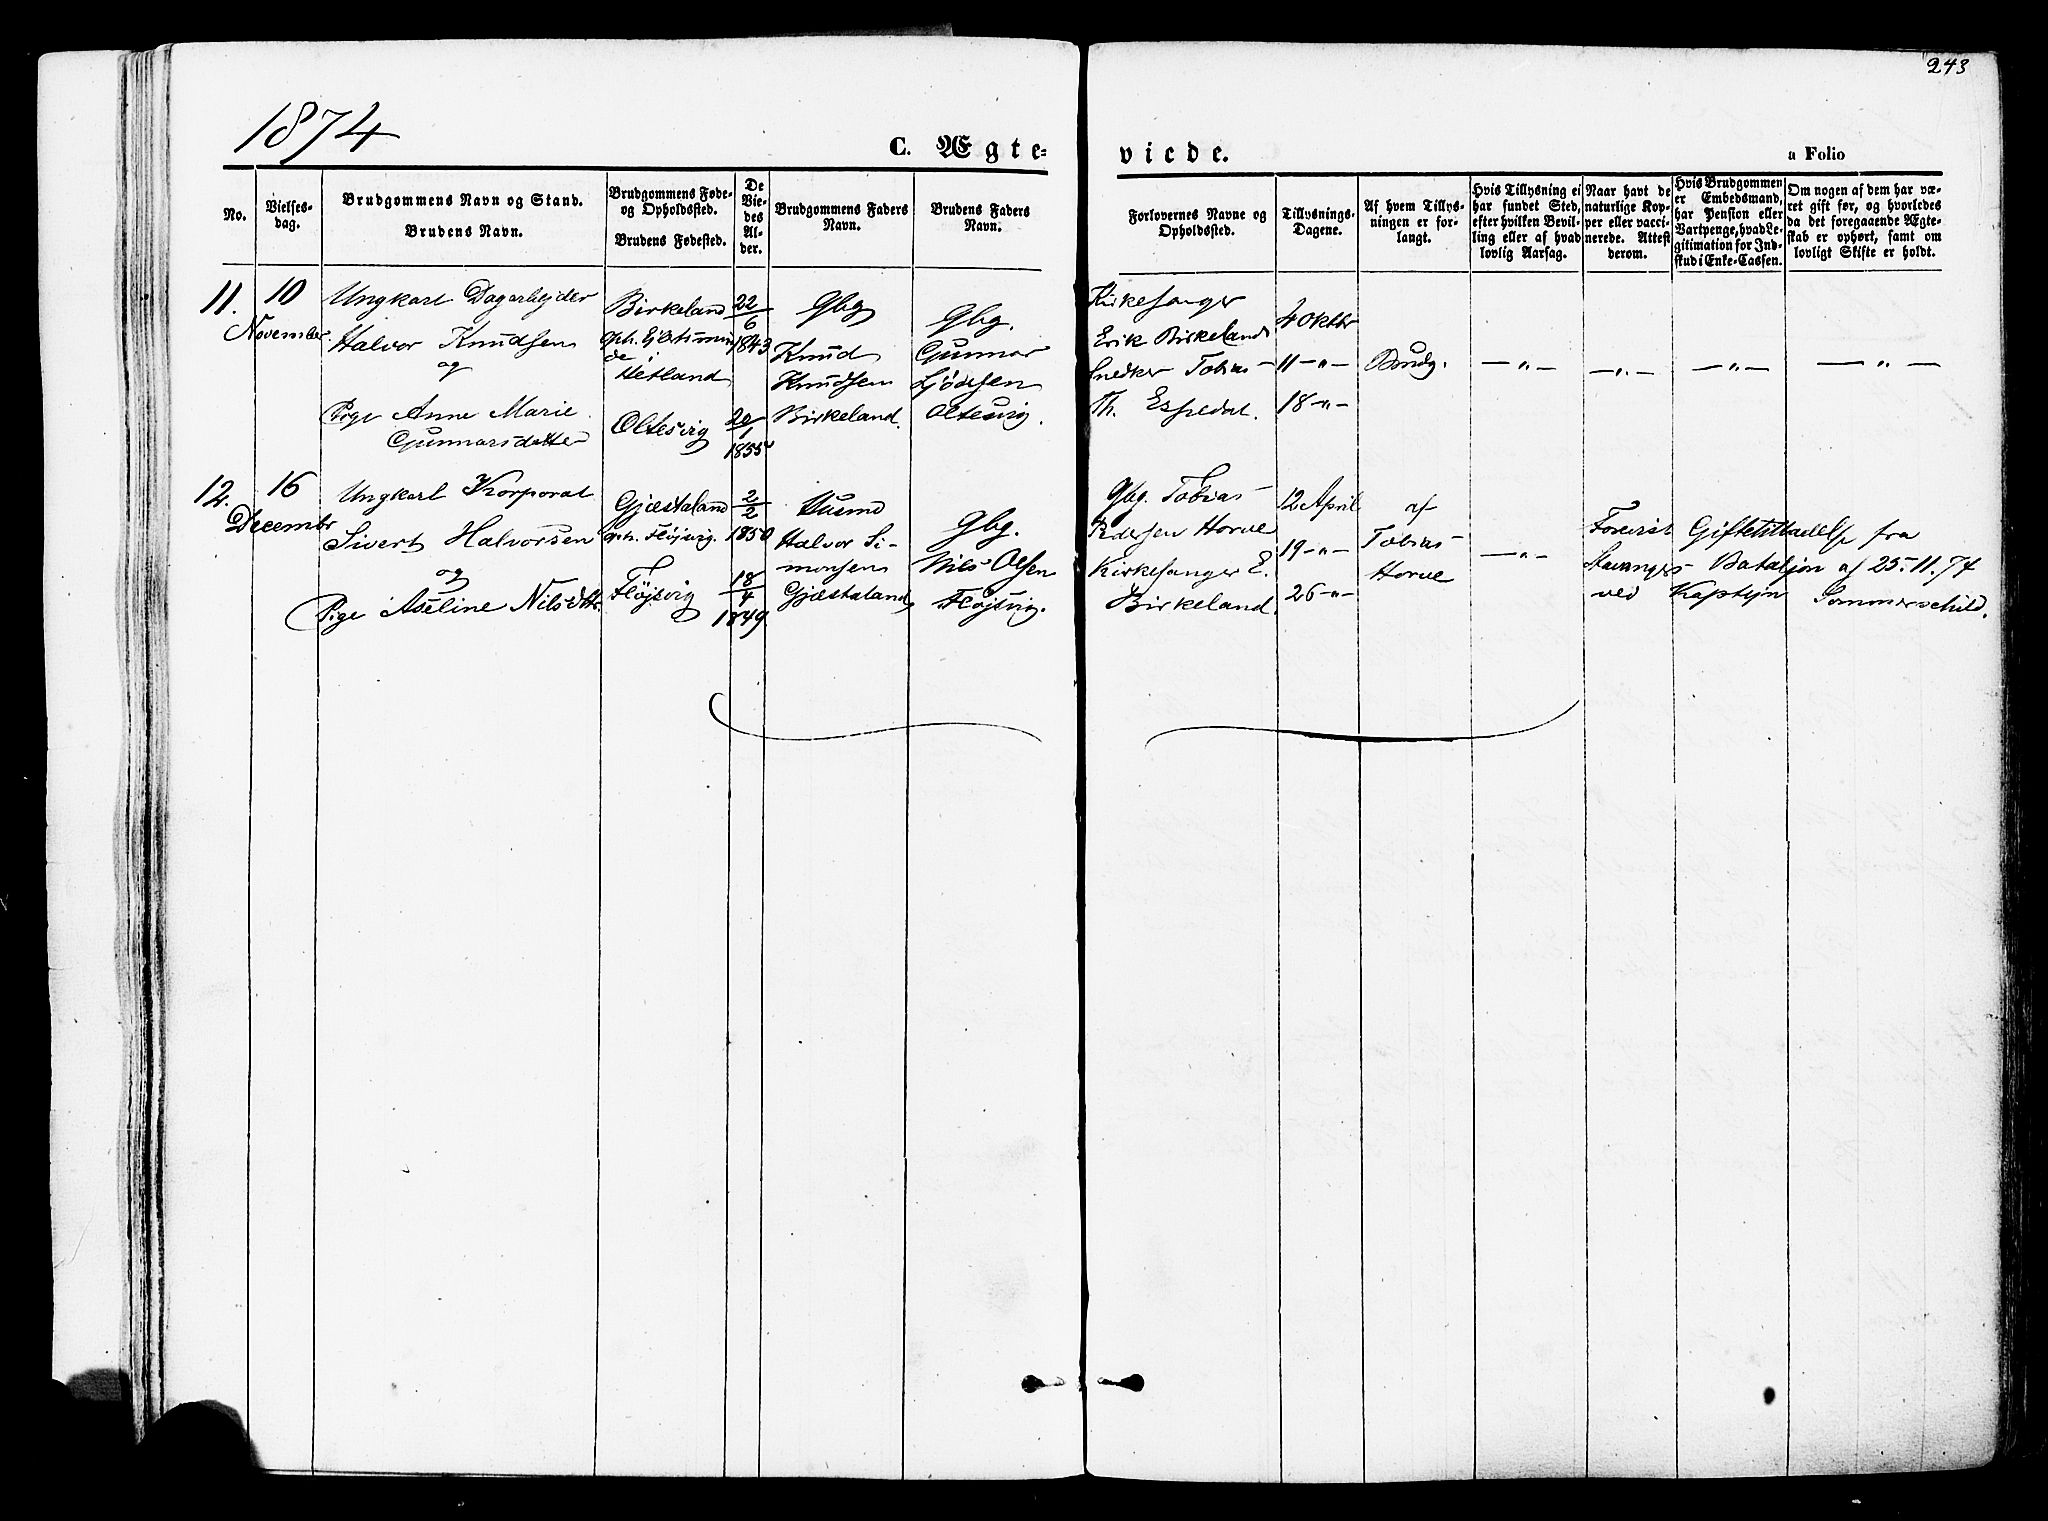 243
1874
C. Ægte-
viede.
a Folio
No.
Vielses-
dag.
Brudgommens Navn og Stand.
Brudens Navn.
Brudgommens Føde-
og Opholdssted.
Brudens Fødested.
De
Vie-
des
Al-
der.
Brudgommens Faders
Navn.
Brudens Faders
Navn.
Forlovernes Navne og
Opholdssted.
Tillysnings-
Dagene.
Af hvem Tillys-
ningen er for-
langt.
Hvis Tillysning ei
har fundet Sted,
efter hvilken Bevil-
ling eller af hvad
lovlig Aarsag.
Naar havt de
naturlige Kop-
per eller vacci-
nerede. Attest
derom.
Hvis Brudgommen
er Embedsmand,
har Pension eller
Vartpenge, hvad Le-
gitimation for Ind-
skud i Enke-Cassen.
Om nogen af dem har væ-
ret gift før, og hvorledes
da det foregaaende Ægte-
skab er ophørt, samt om
lovligt Skifte er holdt.
11.
10
November
Ungkarl Dagarbejder
Halvor Knudsen
og
Pige Anne Marie
Gunnarsdatter
Birkeland
oph.
de i
Hetland
Oltesvig
22
6
1843
20
1
1855
Gbg
Knud
Knudsen
Birkeland
Gbg.
Gunnar
Oltesvig.
Kirkesanger
Erik Birkeland
Snedker Tobias
Th. Espedal.
4 Oktbr
11 -"-
18 -"-
Brudg.
-"-
-"-
-"-
-"-
12.
16
Decembr
Ungkarl Korporal
Sivert Halvorsen
og
Pige Aseline Nilsdttr
Gjæstaland
oph. Fløjsvig.
Fløjsvig
2
2
1850
18
4
1849
Husmd
Halvor Si-
monsens
Gjæstaland
Gbg.
Nils Olsen
Fløjsvig.
Gbg. Tobias
Pedersen Horve
Kirkesanger E.
Birkeland.
12 April
19 -"-
26 -"-
af
Tobias
Horve
-"-
Forevist Giftetilladelse fra
Stavangers Bataljon af 25-11.74
ved Kaptejn Sommerschild.